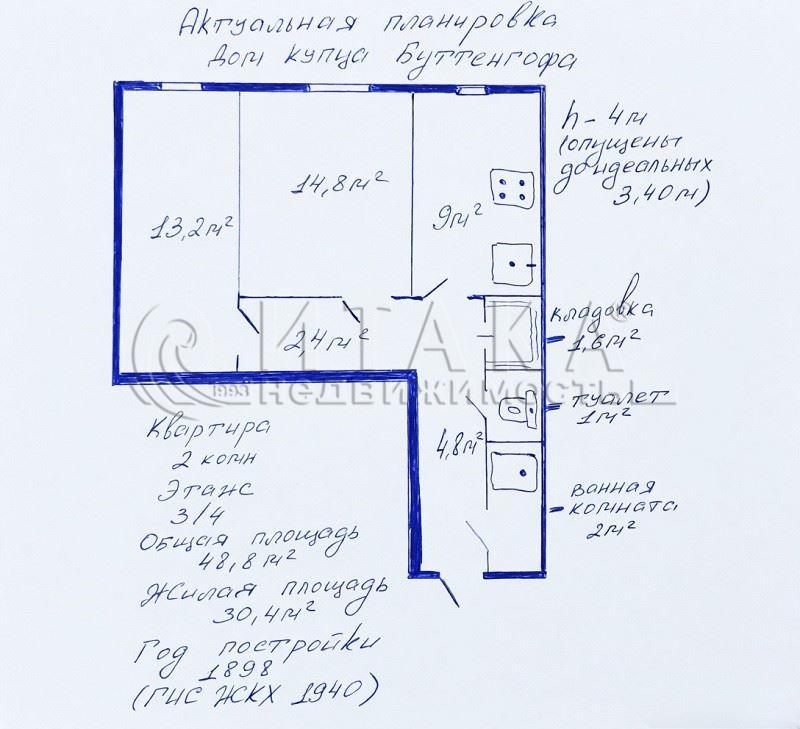 Актуальная планировка
Дом купца Буттенгофа
h - 4м
(опущены
до идеальных
3,40м)
14,8м²
9м²
13,2м²
2,4м²
кладовка
1,6м²
ИТАКА
1993
недвижимость
туалет
1м²
4,8м²
ванная
комната
2м²
Квартира
2 комн
Этаж
3/4
Общая площадь
48,8м²
Жилая площадь
30,4м²
Год постройки
1898
(ГИС ЖКХ 1940)